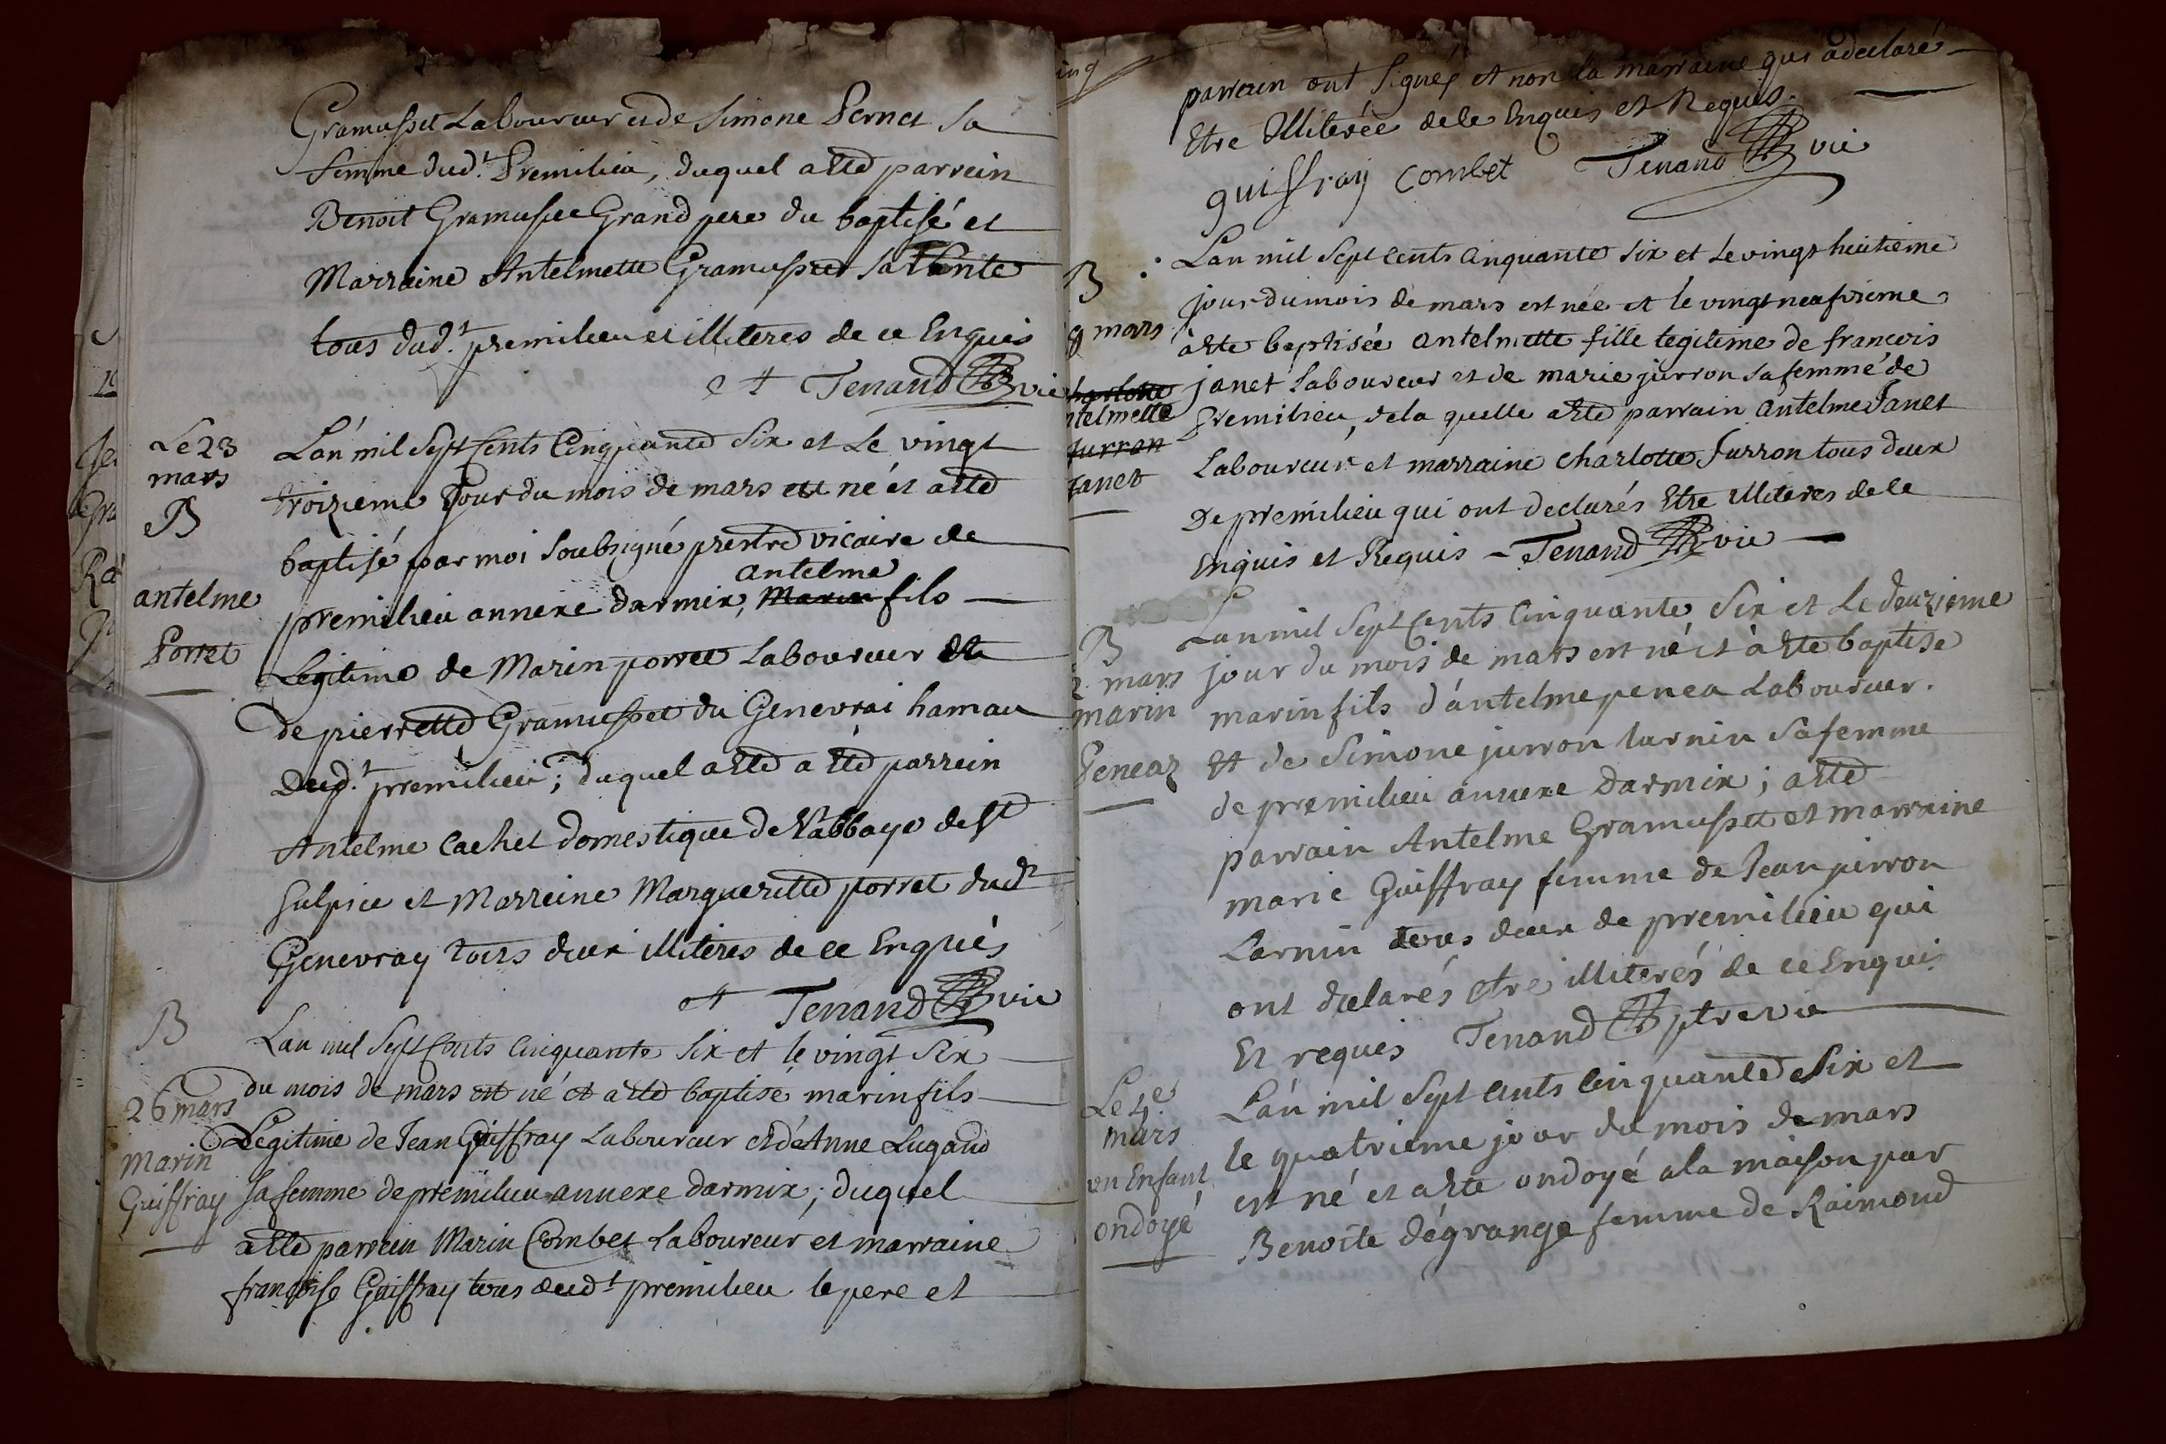 Gramusset Laboureur et de Simone Pernet sa
femme dud.t Premilieu, duquel a été parrein
Benoit Gramusset Grand pere du baptisé et
Marraine Antelmette Gramusset sa Tante
tous dud.t premilieu et illiteres de ce Enquis
et Tenand vic
Le 23
mars
B
antelme
Porret
L'an mil Sept Cents Cinquante Six et Le vingt
troizieme Jour du mois de mars est né et a été
baptisé par moi Soubsigné prestre vicaire de
antelme
premilieu annexe darmix, Marin fils
Legitime de Marin porret Laboureur et
de pierrette Gramusset du Genevrai hamau
dud.t premilieu; duquel a été a été parrein
Antelme Cachet domestique de L'abbaye de St
Sulpice et Marreine Margueritte porret dud.t
Genevray tous deux illiteres de ce Enquis
et Tenand vic
B
26 mars
Marin
Guiffray
L'an mil Sept Cents Cinquante Six et le vingt Six
du mois de mars est né et a été baptisé marin fils
Legitime de Jean Guiffray Laboureur et de Anne Lugand
sa femme de premilieu annexe darmix; duquel
a été parrein Marin Combet Laboureur et marraine
françoise Guiffray tous deux dud.t premilieu le pere et
parrein ont signés et non la marraine qui a declaré
Etre Illiterée de ce Enquis et Requis.
guiffray Combet Tenand vic
B
9 mars
charlotte
ntelmette
Jurron
Janet
L'an mil Sept Cents Cinquante six et le vingt huitieme
jour du mois de mars est née et le vingt neufvieme
a été baptisée antelmette fille legitime de francois
janet laboureur et de marie jurron sa femme de
Premilieu, de la quelle a été parrain antelme Janet
Laboureur et marraine charlotte Jurron tous deux
De premilieu qui ont declarés Etre illiteres de ce
Enquis et Requis - Tenand vic
B
2 mars
marin
Peneaz
L'an mil Sept Cents Cinquante Six et Le deuzieme
jour du mois de mars est né et a été baptise
marin fils d'antelme penea Laboureur.
et de Simone jurron larnin sa femme
de premilieu annexe darmix; a été
parrain Antelme Gramusset et marraine
marie Guiffray femme de Jean jurron
Larnin tous deux de premilieu qui
ont declarés etre illiterés de ce Enquis
Et requis Tenand ptre vic
Le 4e
mars
un Enfant
ondoyé
L'an mil Sept Cents Cinquante Six et
le quatrieme jour du mois de mars
est né et a été ondoyé a la maison par
Benoite dégrange femme de Raimond